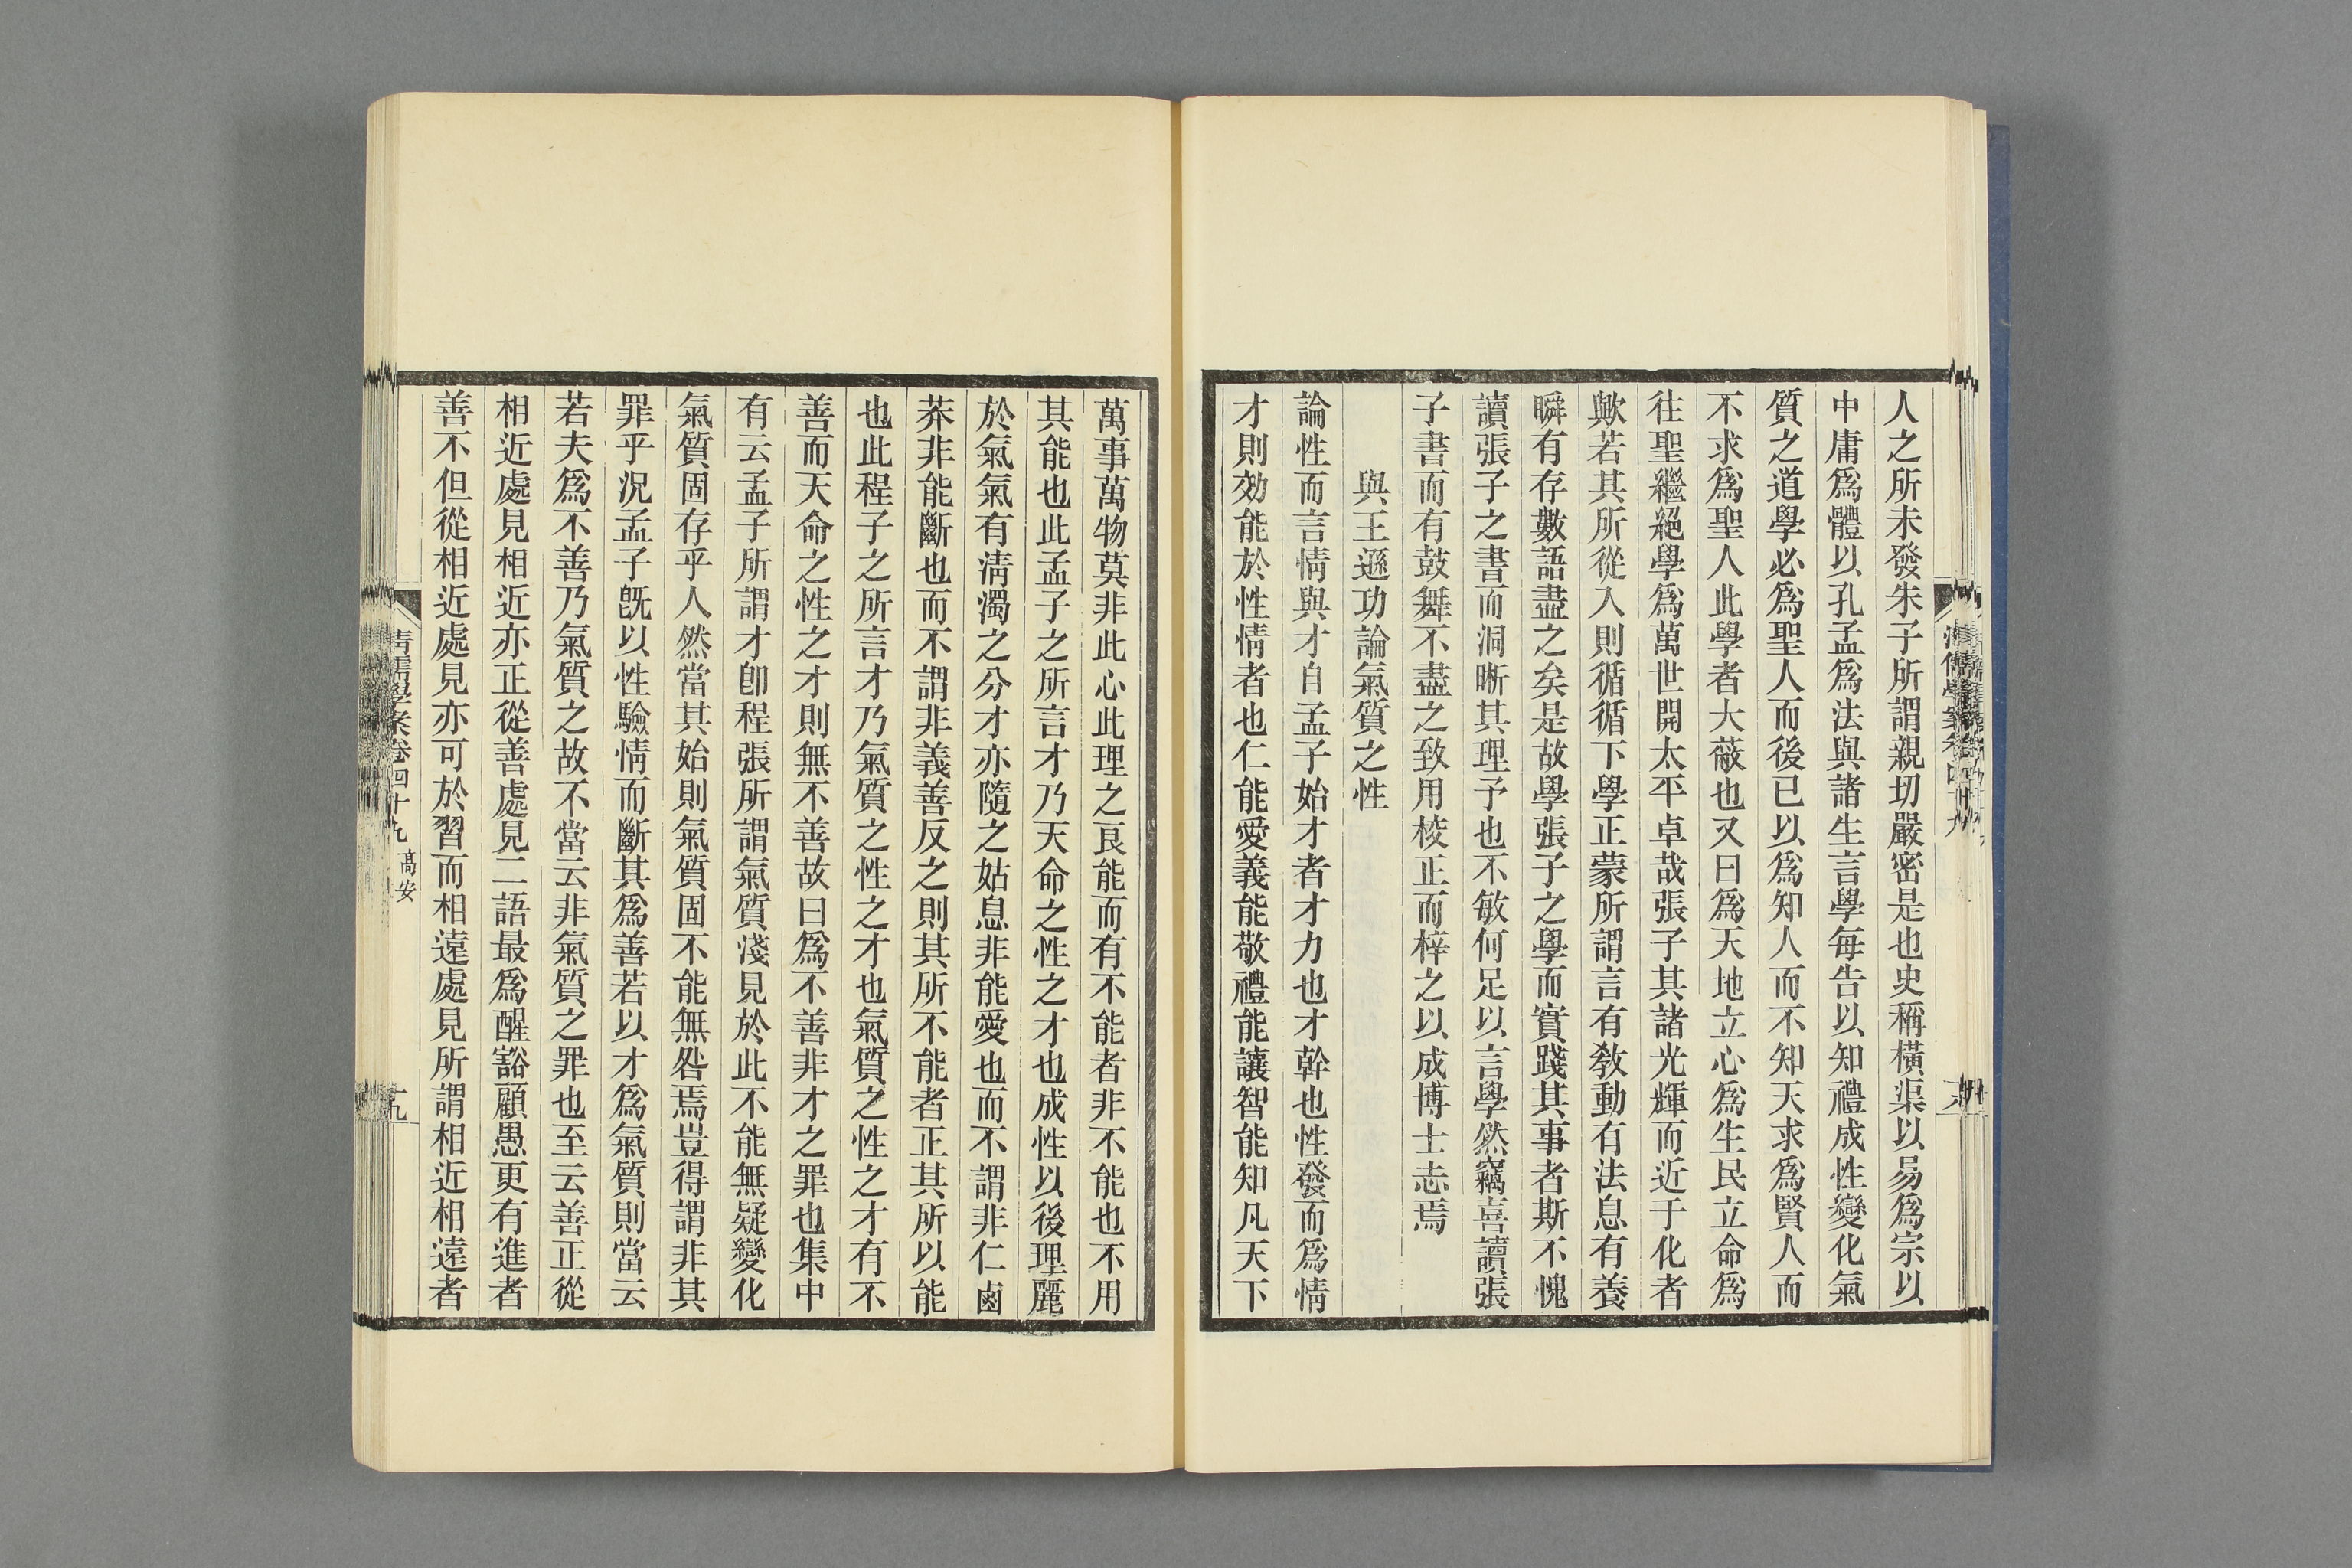 人之所未發朱子所謂親切嚴密是也史稱橫渠以易爲宗以
中庸爲體以孔孟爲法與諸生言學每告以知禮成性變化氣
質之道學必爲聖人而後已以爲知人而不知天求爲賢人而
不求爲聖人此學者大蔽也又曰爲天地立心爲生民立命爲
往聖繼絕學爲萬世開太平卓哉張子其諸光輝而近于化者
歟若其所從入則循循下學正蒙所謂言有敎動有法息有養
瞬有存數語盡之矣是故學張子之學而實踐其事者斯不愧
讀張子之書而洞晰其理予也不敏何足以言學然竊喜讀張
子書而有鼓舞不盡之致用校正而梓之以成博士志焉
與王遜功論氣質之性
論性而言情與才自孟子始才者才力也才幹也性發而爲情
才則効能於性情者也仁能愛義能敬禮能讓智能知凡天下
萬事萬物莫非此心此理之良能而有不能者非不能也不用
其能也此孟子之所言才乃天命之性之才也成性以後理麗
於氣氣有淸濁之分才亦隨之姑息非能愛也而不謂非仁鹵
莽非能斷也而不謂非義善反之則其所不能者正其所以能
也此程子之所言才乃氣質之性之才也氣質之性之才有不
善而天命之性之才則無不善故曰爲不善非才之罪也集中
有云孟子所謂才卽程張所謂氣質淺見於此不能無疑變化
氣質固存乎人然當其始則氣質固不能無咎焉豈得謂非其
罪乎況孟子旣以性驗情而斷其爲善若以才爲氣質則當云
若夫爲不善乃氣質之故不當云非氣質之罪也至云善正從
相近處見相近亦正從善處見二語最爲醒豁顧愚更有進者
善不但從相近處見亦可於習而相遠處見所謂相近相遠者
清儒學案卷四十九
高安
十九